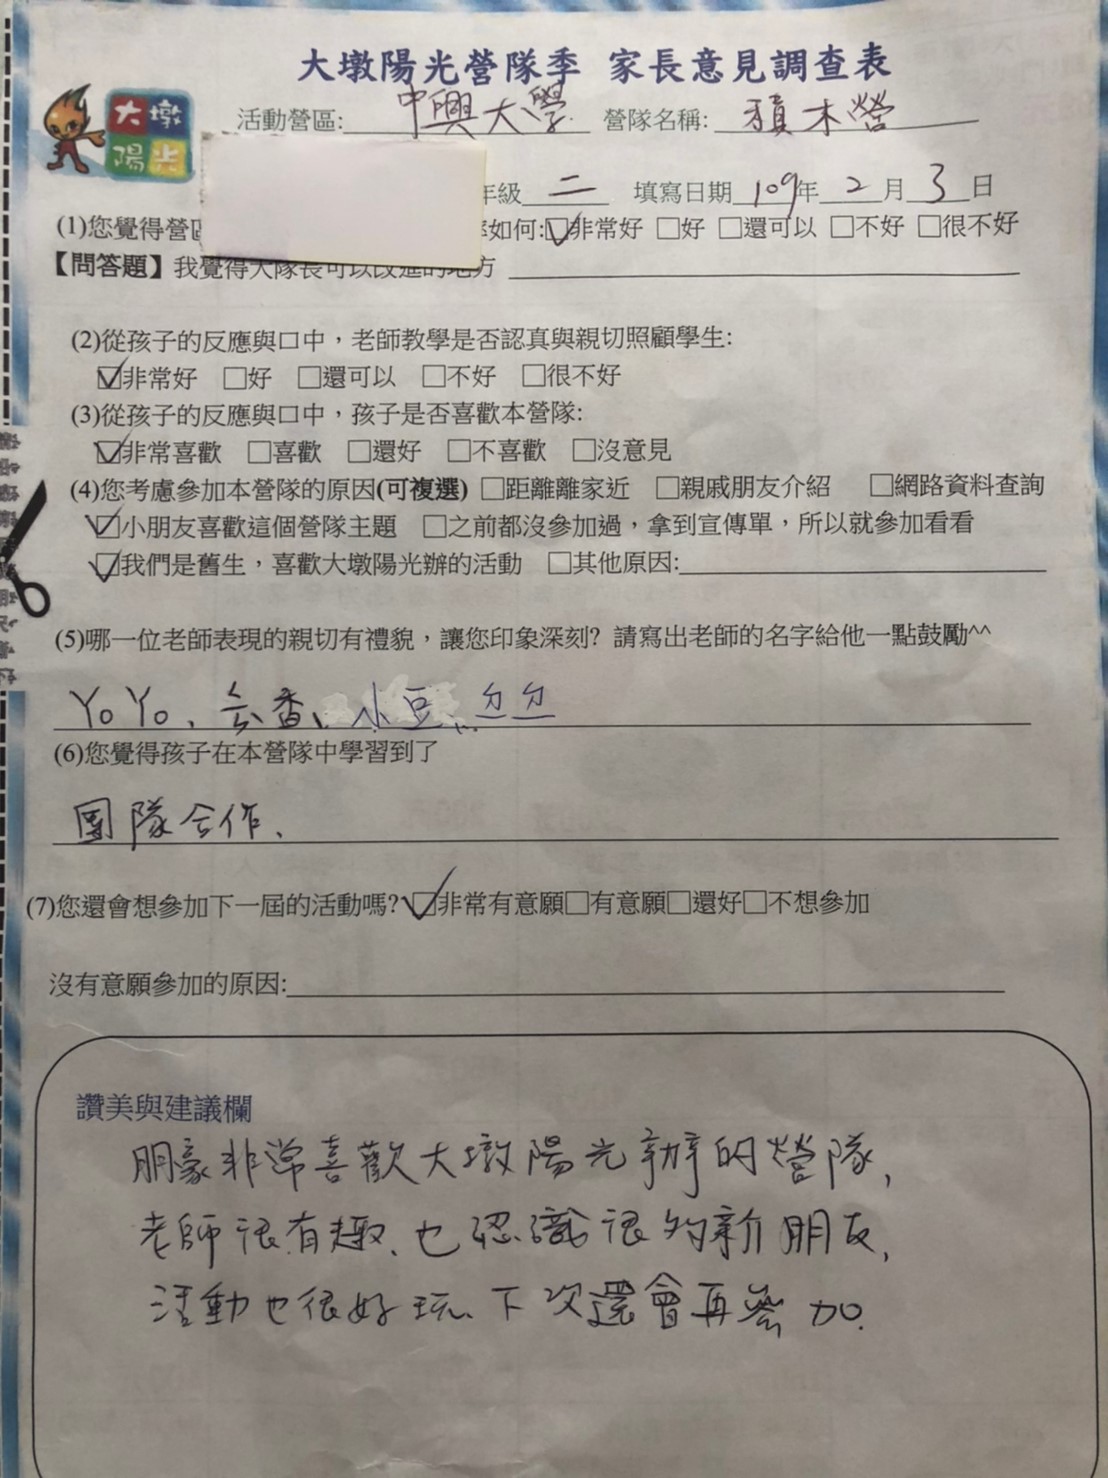 大墩陽光營隊季 家長意見調查表
大墩
陽光
活動營區: 中興大學 營隊名稱: 積木營
年級 二 填寫日期 109年 2 月 3 日
(1)您覺得營 如何:☑非常好 □好 □還可以 □不好 □很不好
【問答題】我覺得大隊長可以改進的地方
(2)從孩子的反應與口中，老師教學是否認真與親切照顧學生:
☑非常好 □好 □還可以 □不好 □很不好
(3)從孩子的反應與口中，孩子是否喜歡本營隊:
☑非常喜歡 □喜歡 □還好 □不喜歡 □沒意見
(4)您考慮參加本營隊的原因(可複選) □距離離家近 □親戚朋友介紹 □網路資料查詢
☑小朋友喜歡這個營隊主題 □之前都沒參加過，拿到宣傳單，所以就參加看看
☑我們是舊生，喜歡大墩陽光辦的活動 □其他原因:
(5)哪一位老師表現的親切有禮貌，讓您印象深刻? 請寫出老師的名字給他一點鼓勵^^
YoYo、 香、小豆、ㄉㄉ
(6)您覺得孩子在本營隊中學習到了
團隊合作、
(7)您還會想參加下一屆的活動嗎?☑非常有意願□有意願□還好□不想參加
沒有意願參加的原因:
讚美與建議欄
朋豪非常喜歡大墩陽光辦的營隊,
老師很有趣、也認識很多新朋友,
活動也很好玩、下次還會再參加.